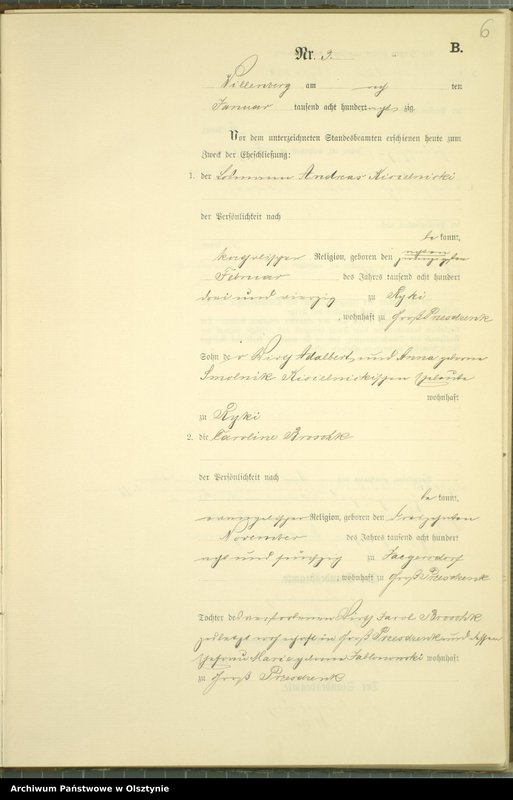 6
B.
Nr. 3.
Willenberg am acht ten
Januar tausend acht hundert achtzig
Vor dem unterzeichneten Standesbeamten erschienen heute zum
Zweck der Eheschließung:
1. der Losmann Andreas Kisielnicki
der Persönlichkeit nach
be kannt,
katholischer Religion, geboren den achten
Februar des Jahres tausend acht hundert
drei und vierzig zu Ryki
, wohnhaft zu Groß Przesdzenk
Sohn der Wirth Adalbert und Anna geborne
Smolnik Kisielnickischen Eheleute
wohnhaft
zu Ryki
2. die Caroline Broschk
der Persönlichkeit nach
be kannt,
evangelischer Religion, geboren den dreizehnten
November des Jahres tausend acht hundert
acht und fünfzig zu Jaegersdorf
, wohnhaft zu Groß Przesdzenk
Tochter des verstorbenen Wirth Karol Broschk
zuletzt wohnhaft in Groß Przesdzenk und dessen
Ehefrau Marie geborne Jablonowski wohnhaft
zu Groß Przesdzenk
Archiwum Państwowe w Olsztynie